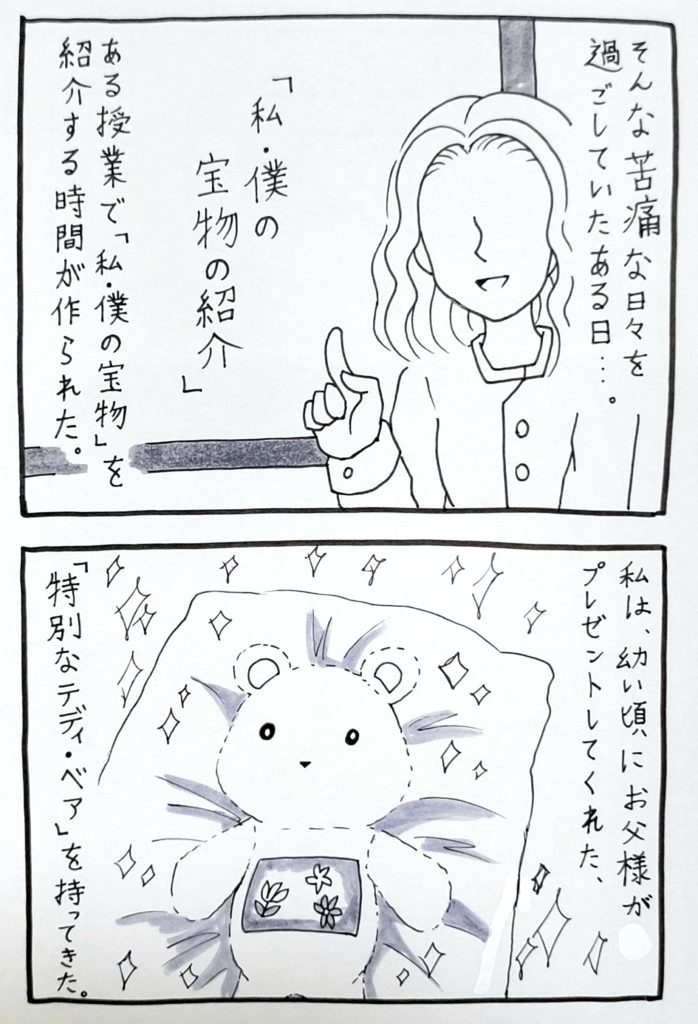 そんな苦痛な日々を
過ごしていたある日…。
「私・僕の
宝物の紹介」
ある授業で「私・僕の宝物」を
紹介する時間が作られた。
私は、幼い頃にお父様が
プレゼントしてくれた、
「特別なテディ・ベア」を持ってきた。